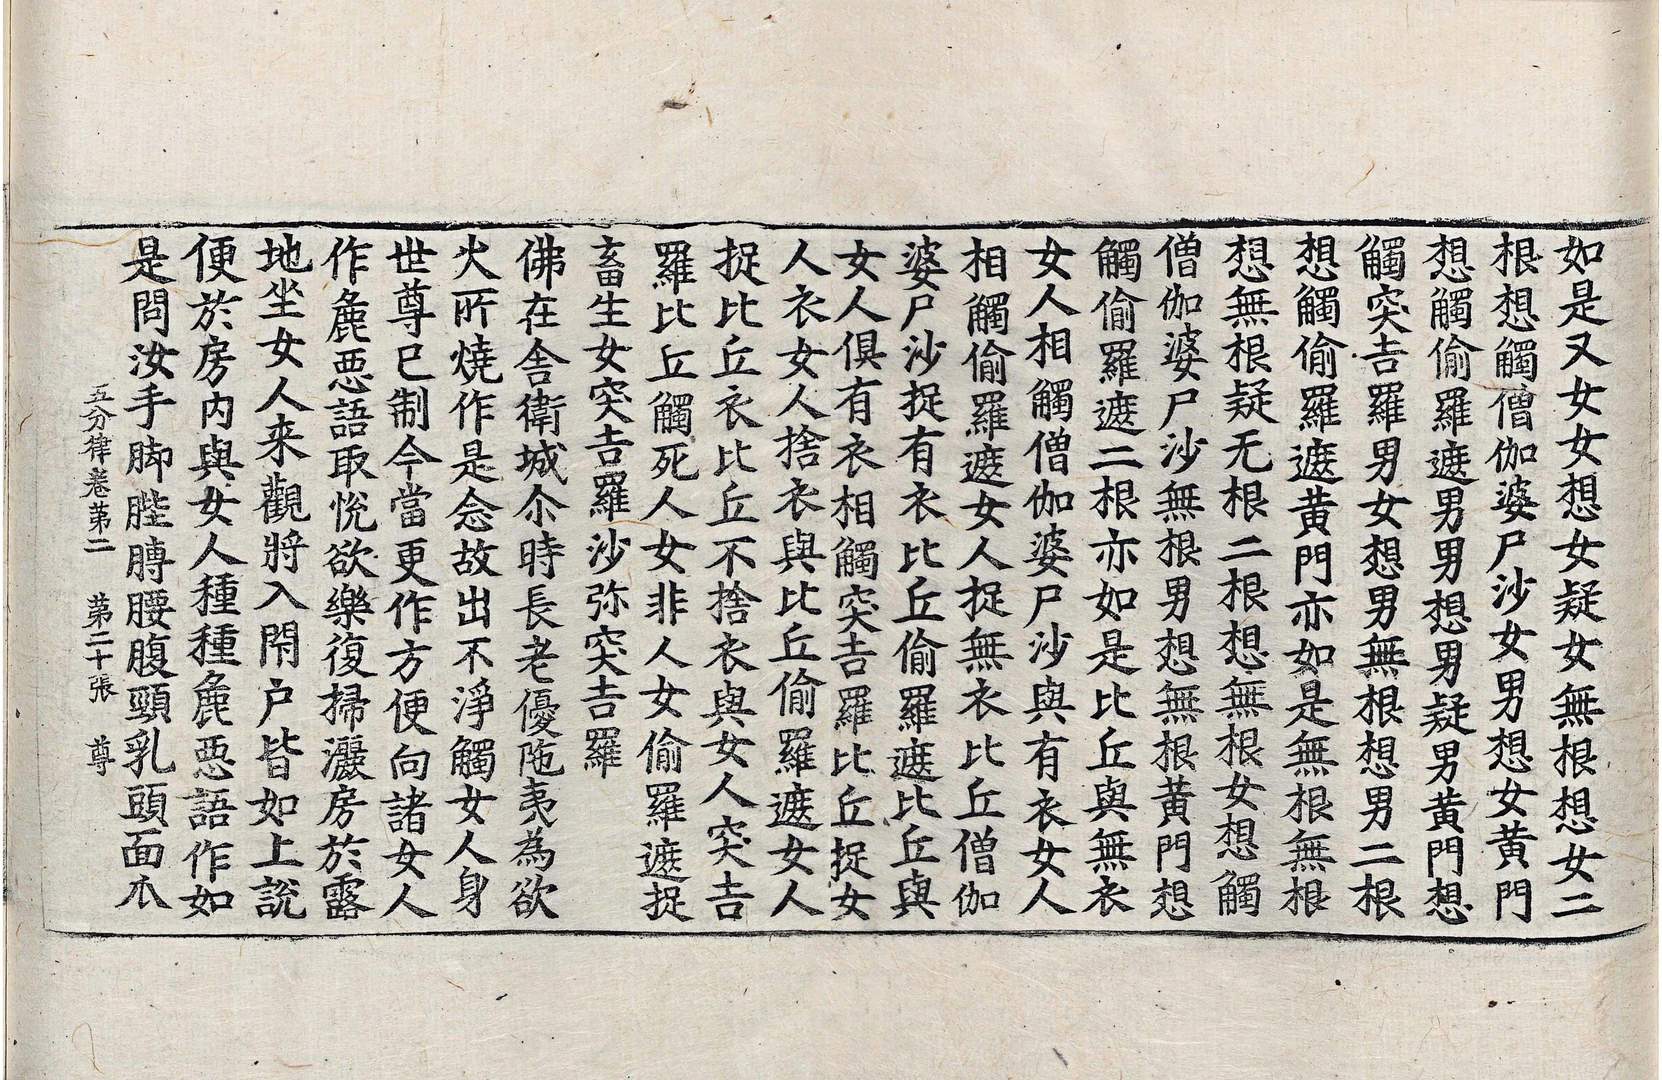 如是又女女想女疑女無根想女二
根想觸僧伽婆尸沙女男想女黄門
想觸偷羅遮男男想男疑男黄門想
觸突吉羅男女想男無根想男二根
想觸偷羅遮黄門亦如是無根無根
想無根疑无根二根想無根女想觸
僧伽婆尸沙無根男想無根黄門想
觸偷羅遮二根亦如是比丘與無衣
女人相觸僧伽婆尸沙與有衣女人
相觸偷羅遮女人捉無衣比丘僧伽
婆尸沙捉有衣比丘偷羅遮比丘與
女人俱有衣相觸突吉羅比丘捉女
人衣女人捨衣與比丘偷羅遮女人
捉比丘衣比丘不捨衣與女人突吉
羅比丘觸死人女非人女偷羅遮捉
畜生女突吉羅沙弥突吉羅
佛在舍衛城尒時長老優陁夷為欲
火所燒作是念故出不淨觸女人身
世尊已制今當更作方便向諸女人
作麁惡語取悅欲樂復掃灑房於露
地坐女人来觀將入閇户皆如上說
便於房内與女人種種麁惡語作如
是問汝手脚䏶膞腰腹頸乳頭面爪
五分律卷第二 第二十張 尊